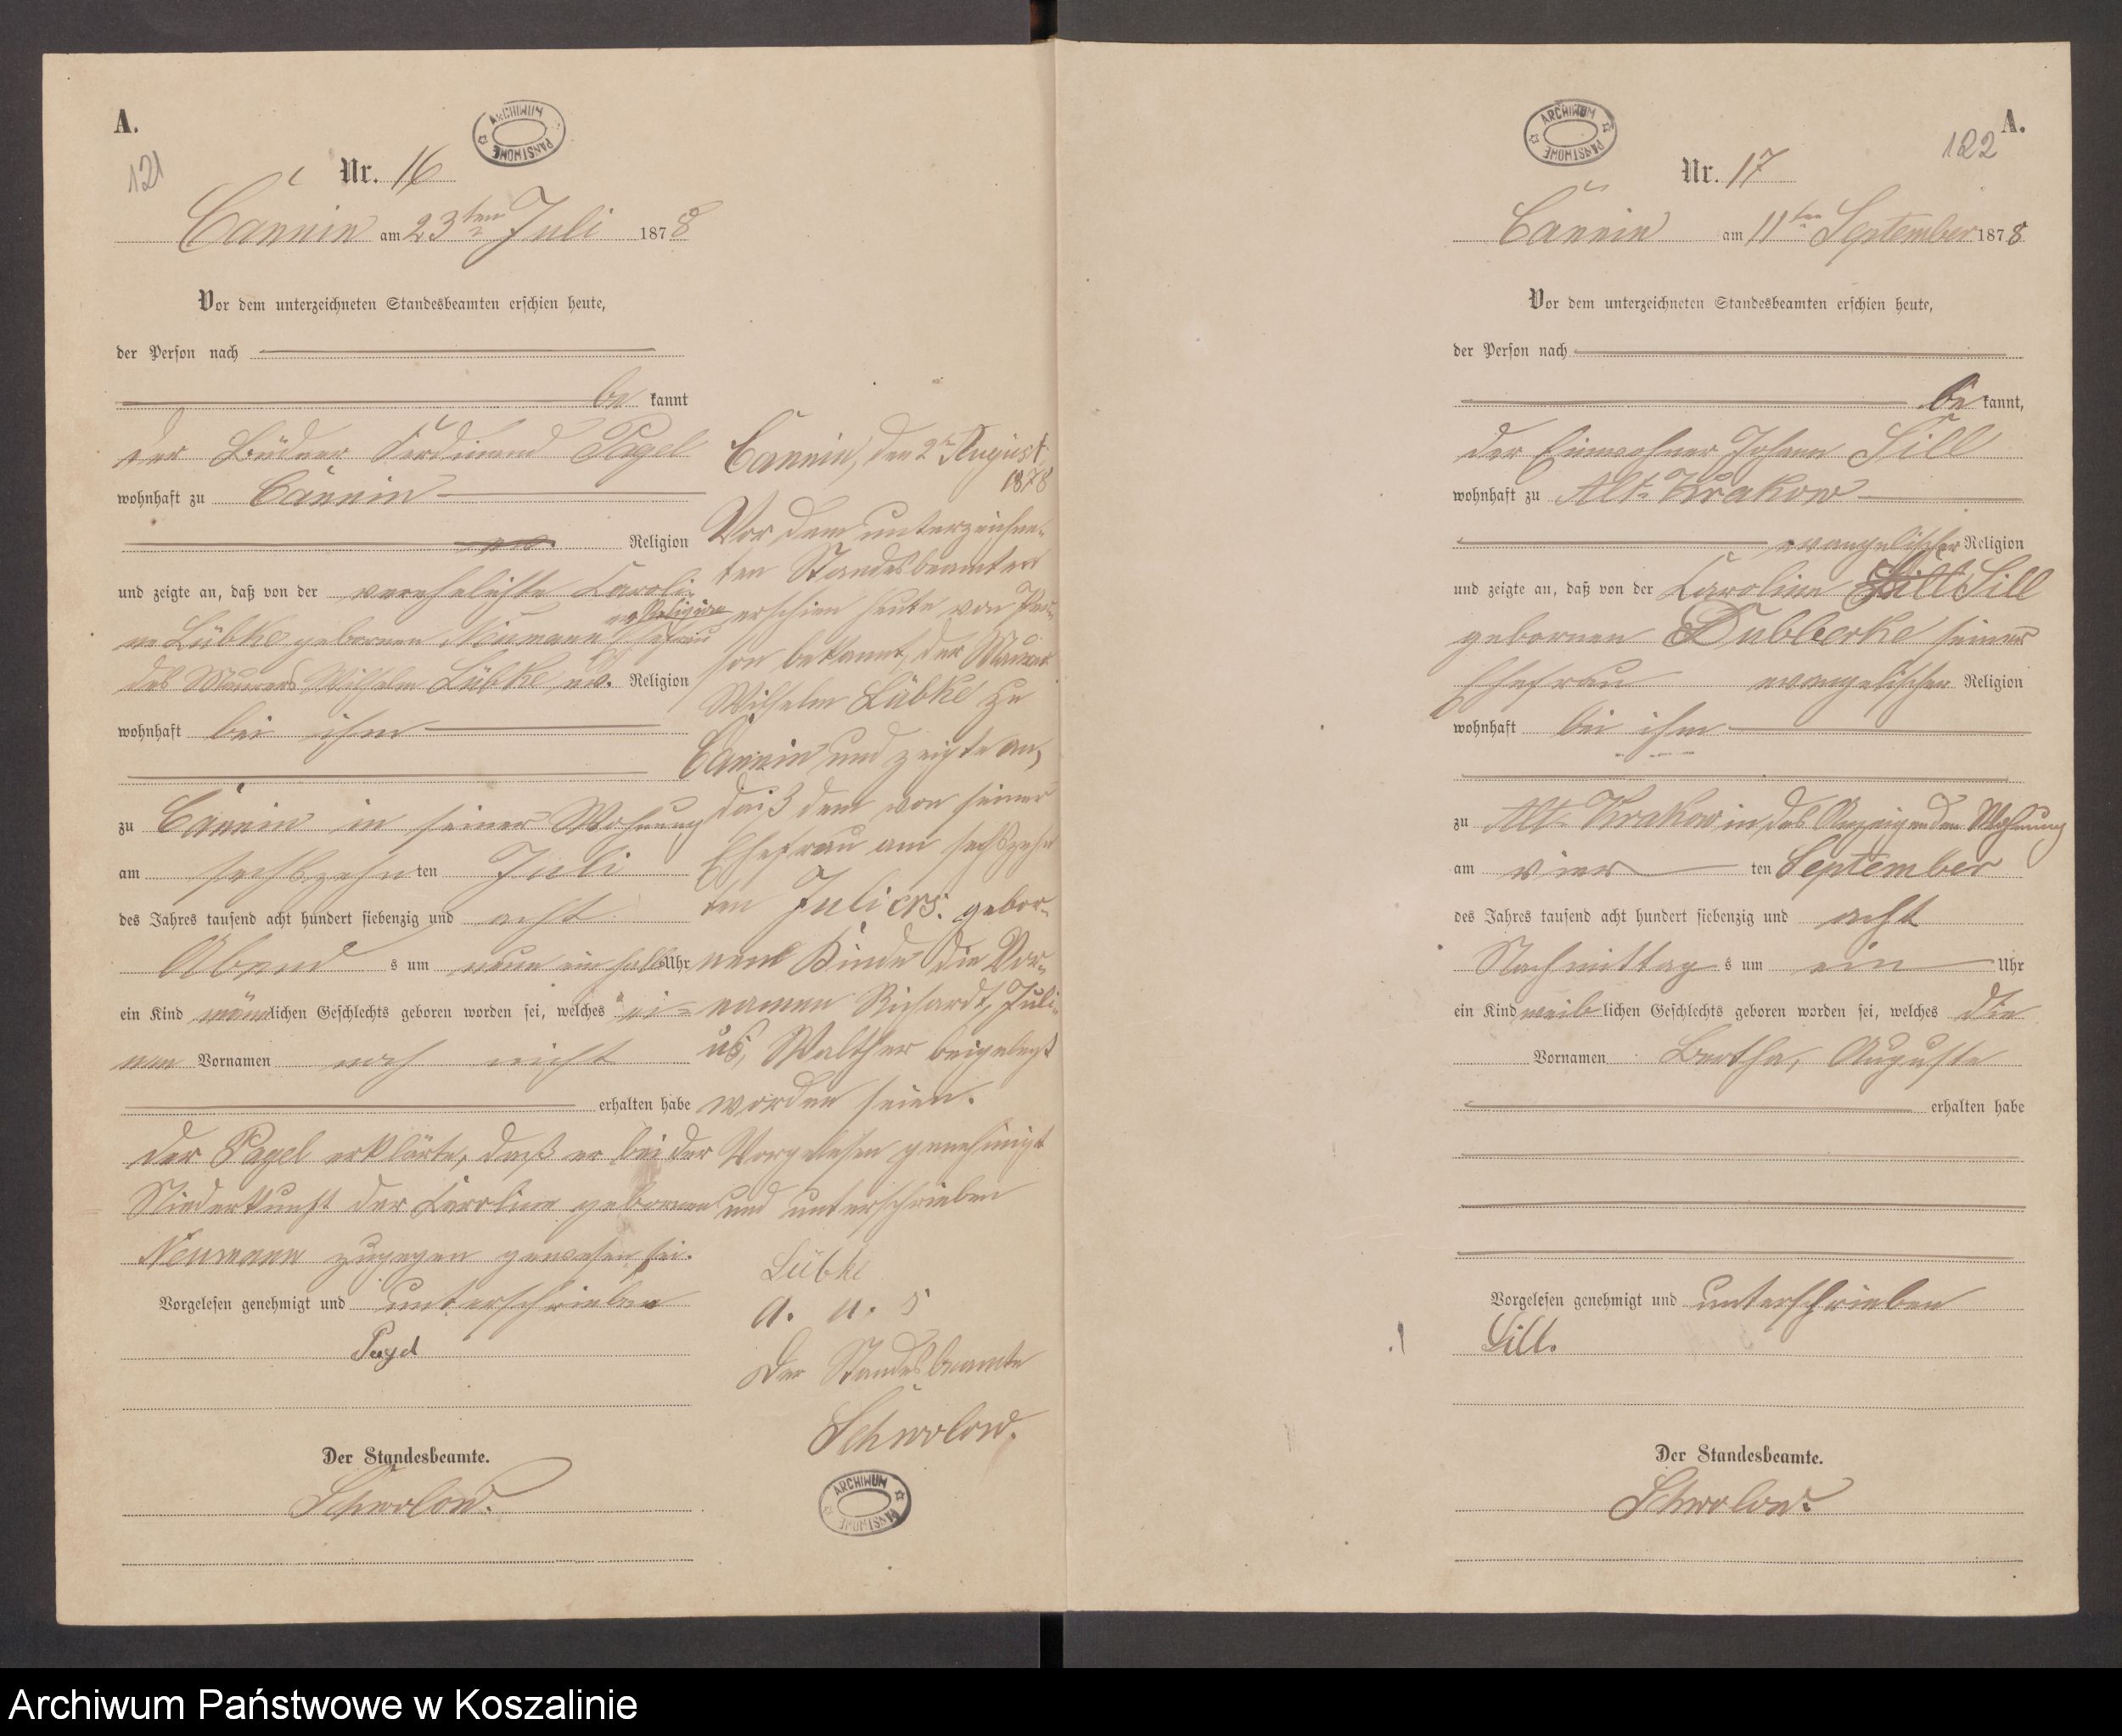 A.
121
ARCHIWUM PAŃSTWOWE
Nr. 16
Cannin am 23ten Juli 1878
Vor dem unterzeichneten Standesbeamten erschien heute,
der Person nach
be kannt
der Büdner Ferdinand Pagel
wohnhaft zu Cannin
Religion
und zeigte an, daß von der verehelichte Caroli-
ne Lübke gebornen Neumann Ehefrau
des Maurers Wilhelm Lübke, ev. Religion
wohnhaft bei ihm
zu Cannin in seiner Wohnung
am sechszehn ten Juli
des Jahres tausend acht hundert siebenzig und acht
Abend s um neun ein halb Uhr
ein Kind männlichen Geschlechts geboren worden sei, welches ei-
nen Vornamen noch nicht
erhalten habe
Der Pagel erklärte, daß er bei der
Niederkunft der Caroline gebornen
Neumann zugegen gewesen sei.
Vorgelesen genehmigt und unterschrieben
Pagel
Der Standesbeamte.
Schwolow.
Cannin, den 2t August
1878
Vor dem unterzeichne-
ten Standesbeamten
erschien heute von Per-
son bekannt, der Maurer
Wilhelm Lübke zu
Cannin und zeigte an,
daß dem von seiner
Ehefrau am sechszehn
ten Juli crs. gebor-
nen Kinde die Vor-
namen Richardt, Juli-
us, Walther beigelegt
worden seien.
Vorgelesen genehmigt
und unterschrieben
Lübke
a. u. s
Der Standesbeamte
Schwolow.
ARCHIWUM PAŃSTWOWE
A.
122
ARCHIWUM PAŃSTWOWE
Nr. 17
Cannin am 11ten September 1878
Vor dem unterzeichneten Standesbeamten erschien heute,
der Person nach
be kannt,
der Einwohner Johann Sill
wohnhaft zu Alt-Krakow
evangelischer Religion
und zeigte an, daß von der Caroline Sill Sill
gebornen Dubberke seiner
Ehefrau evangelischer Religion
wohnhaft bei ihm
zu Alt-Krakow in des Anzeigenden Wohnung
am vier ten September
des Jahres tausend acht hundert siebenzig und acht
Nachmittag s um ein Uhr
ein Kind weiblichen Geschlechts geboren worden sei, welches die
Vornamen Bertha, Auguste
erhalten habe
Vorgelesen genehmigt und unterschrieben
Sill.
Der Standesbeamte.
Schwolow.
Archiwum Państwowe w Koszalinie